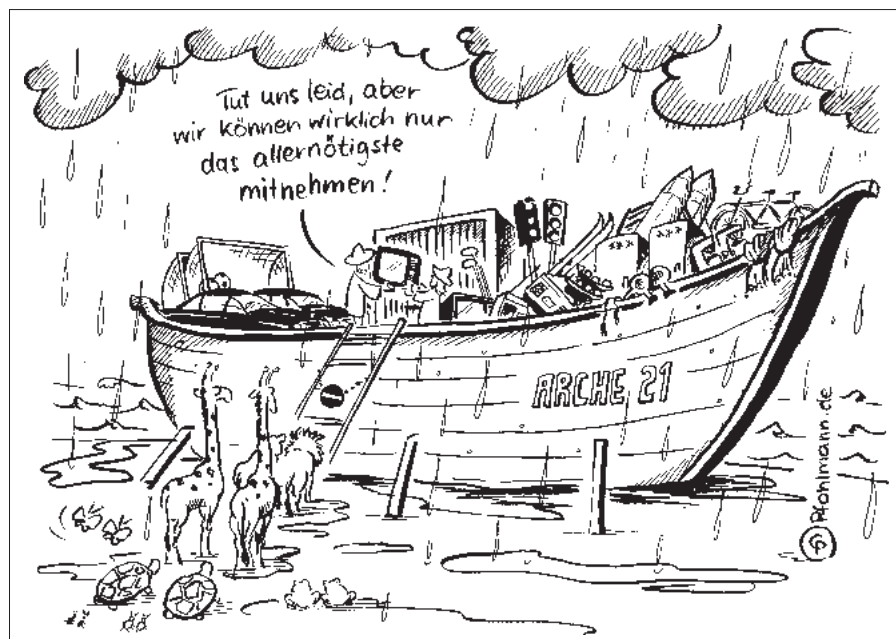 Tut uns leid, aber
wir können wirklich nur
das allernötigste
mitnehmen!
ARCHE 21
Pfohlmann.de